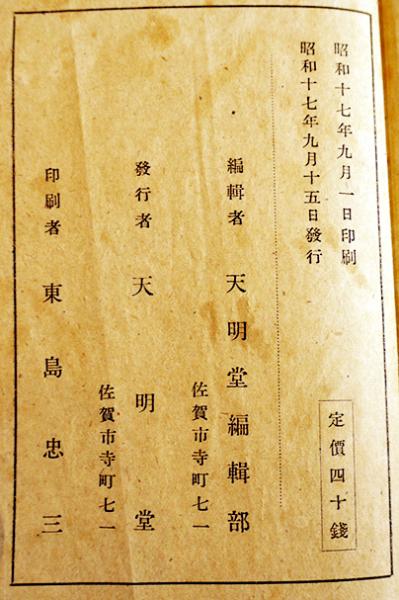 昭和十七年九月一日印刷
昭和十七年九月十五日發行
定價四十錢
編輯者 天明堂編輯部
佐賀市寺町七一
發行者 天明堂
佐賀市寺町七一
印刷者 東島忠三